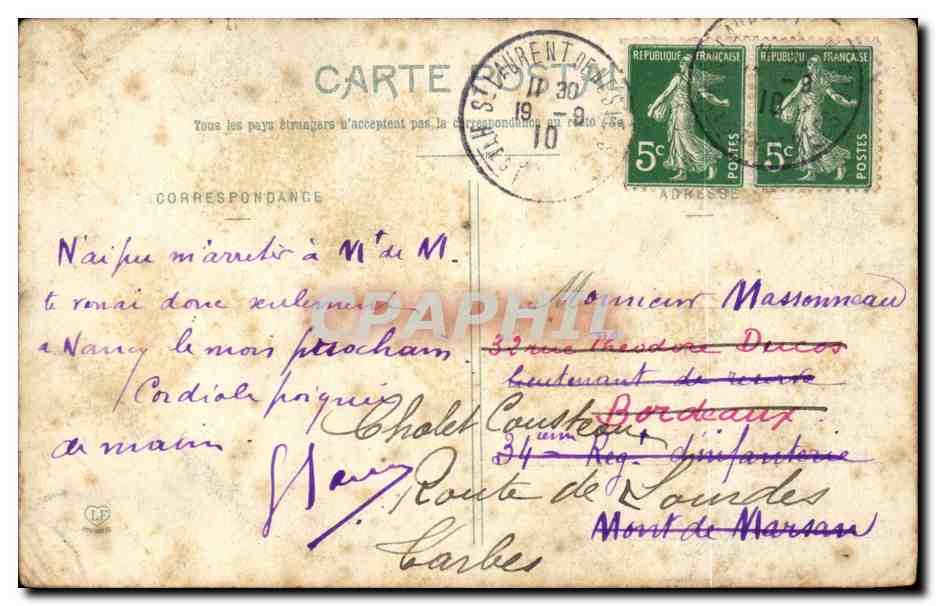 CARTE POSTALE
Tous les pays étrangers n'acceptent pas la correspondance au recto (Se
CORRESPONDANCE
N'ai pu m'arreter à Mt de M.
te verrai donc seulement
a Nancy le mois prochain
Cordiale poignée
de main
LF
ST LAURENT DE
11 30
19 - 9
10
REPUBLIQUE FRANÇAISE
5c
POSTES
REPUBLIQUE FRANÇAISE
5c
POSTES
- 9
10
ADRESSE
Monsieur Massonneau
32 rue Théodore Ducos
lieutenant de reserve
Bordeaux
34eme Reg.t d'infanterie
Mont de Marsan
Chalet Cousteau
Route de Lourdes
Tarbes
CPAPHIL